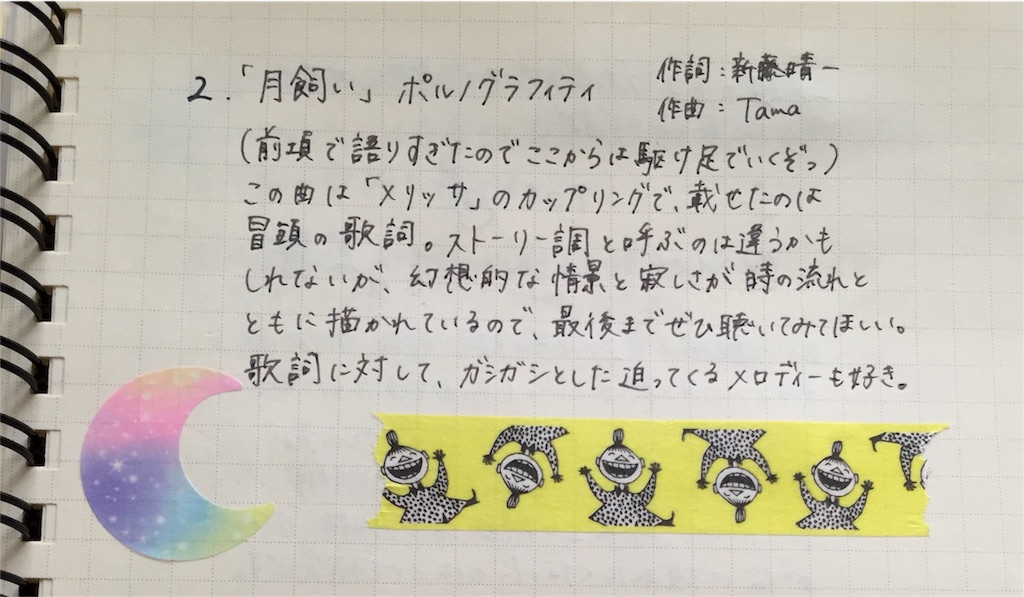 2.「月飼い」ポルノグラフィティ
作詞：新藤晴一
作曲：Tama
(前項で語りすぎたのでここからは駆け足でいくぞっ)
この曲は「メリッサ」のカップリングで、載せたのは
冒頭の歌詞。ストーリー調と呼ぶのは違うかも
しれないが、幻想的な情景と寂しさが時の流れと
ともに描かれているので、最後までぜひ聴いてみてほしい。
歌詞に対して、ガシガシとした迫ってくるメロディーも好き。